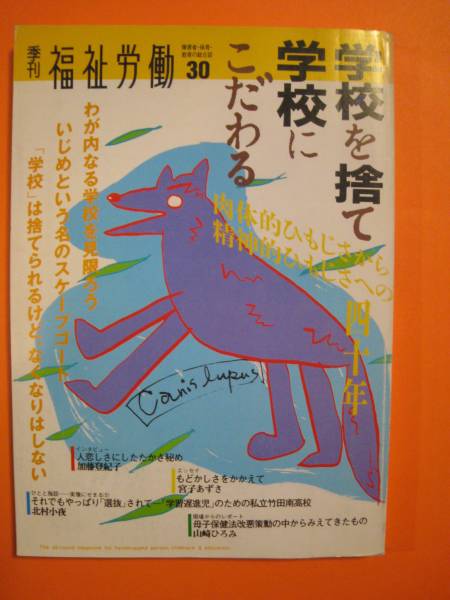 季刊
福祉労働
障害者・保育・
教育の総合誌
30
学校を捨て
学校に
こだわる
肉体的ひもじさから
精神的ひもじさへの
四十年
わが内なる学校を見限ろう
いじめという名のスケープゴート
「学校」は捨てられるけど、なくなりはしない
Canis lupus
インタビュー
人恋しさにしたたかさ秘め
加藤登紀子
エッセイ
もどかしさをかかえて
宮子あずさ
それでもやっぱり「選抜」されて―「学習遅進児」のための私立竹田南高校
北村小夜
現場からのレポート
母子保健法改悪策動の中からみえてきたもの
山崎ひろみ